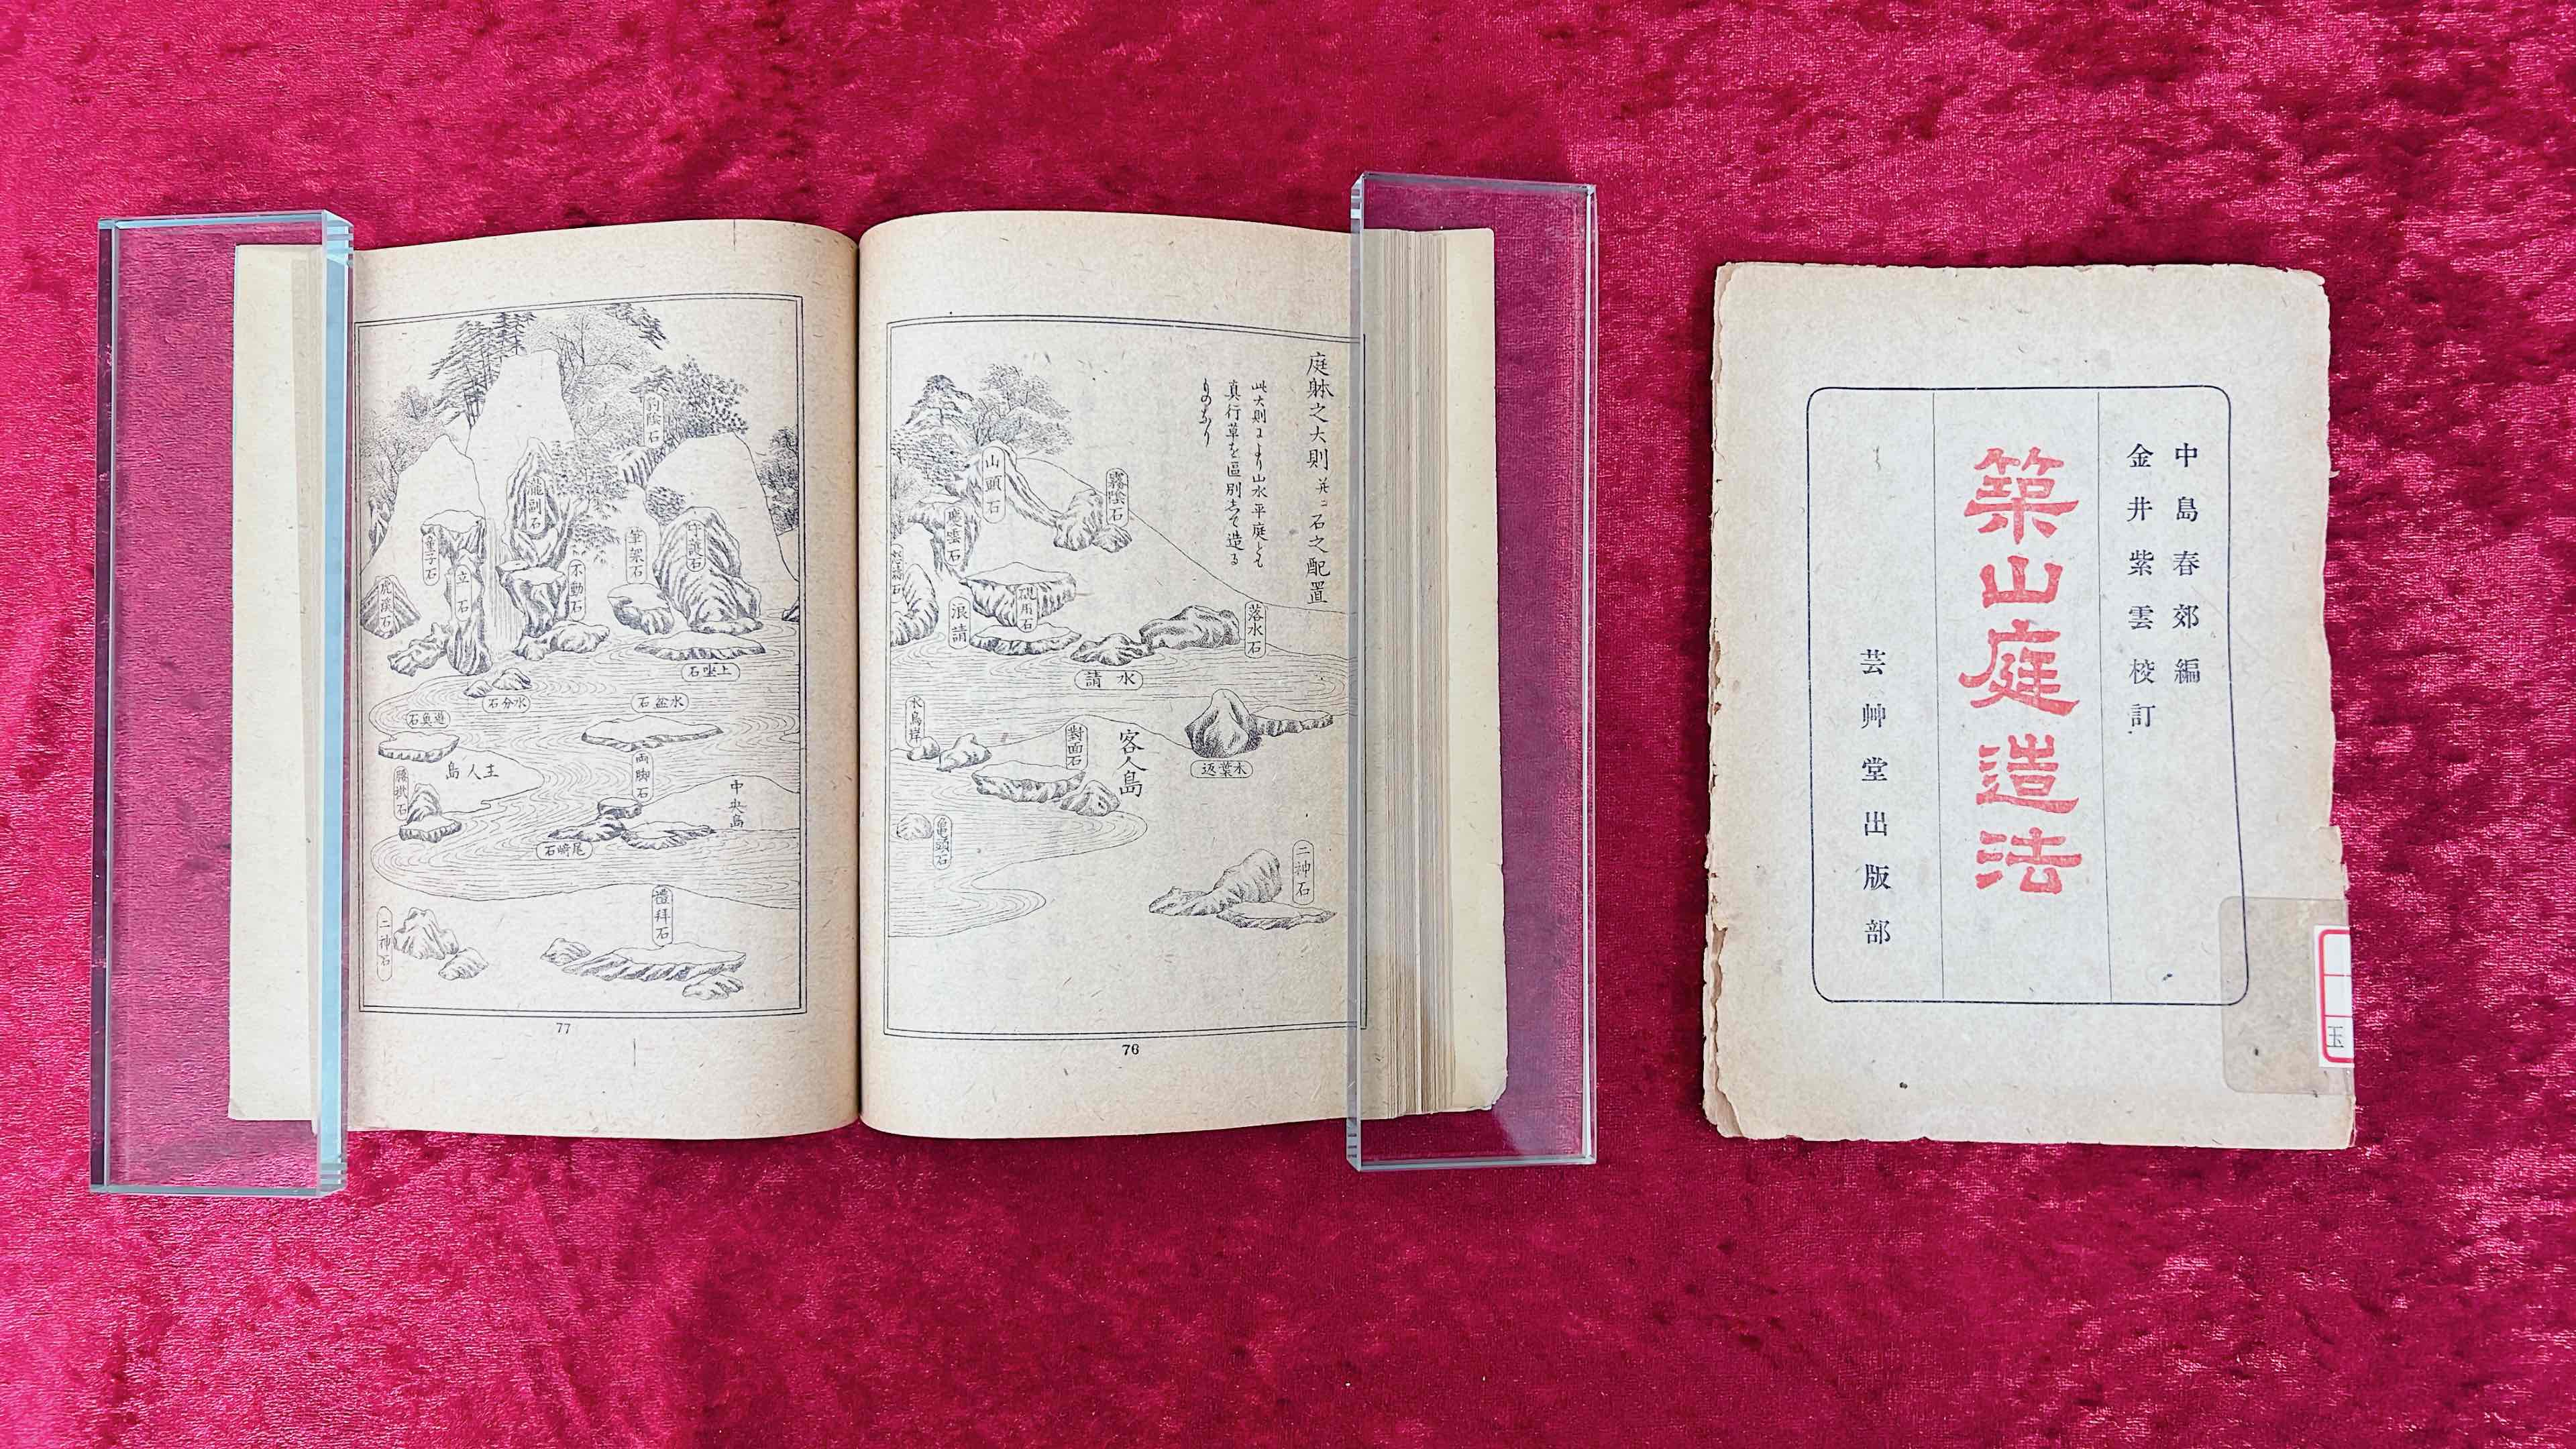 庭躰之大則并ニ石之配置
此大則により山水平庭とも
真行草を區別して造る
ものなり
霧陰石
山頭石
慶雲石
硯用石
浪請
落水石
水請
水葉返
水鳥岸
對面石
客人島
亀頭石
二神石
76
月陰石
瀧副石
童子石
立石
不動石
筆架石
守護石
虎溪石
上坐石
水分石
水盆石
遊魚石
主人島
両脚石
中央島
尾崎石
禮拜石
二神石
77
中島春郊編
金井紫雲校訂
築山庭造法
芸艸堂出版部
玉